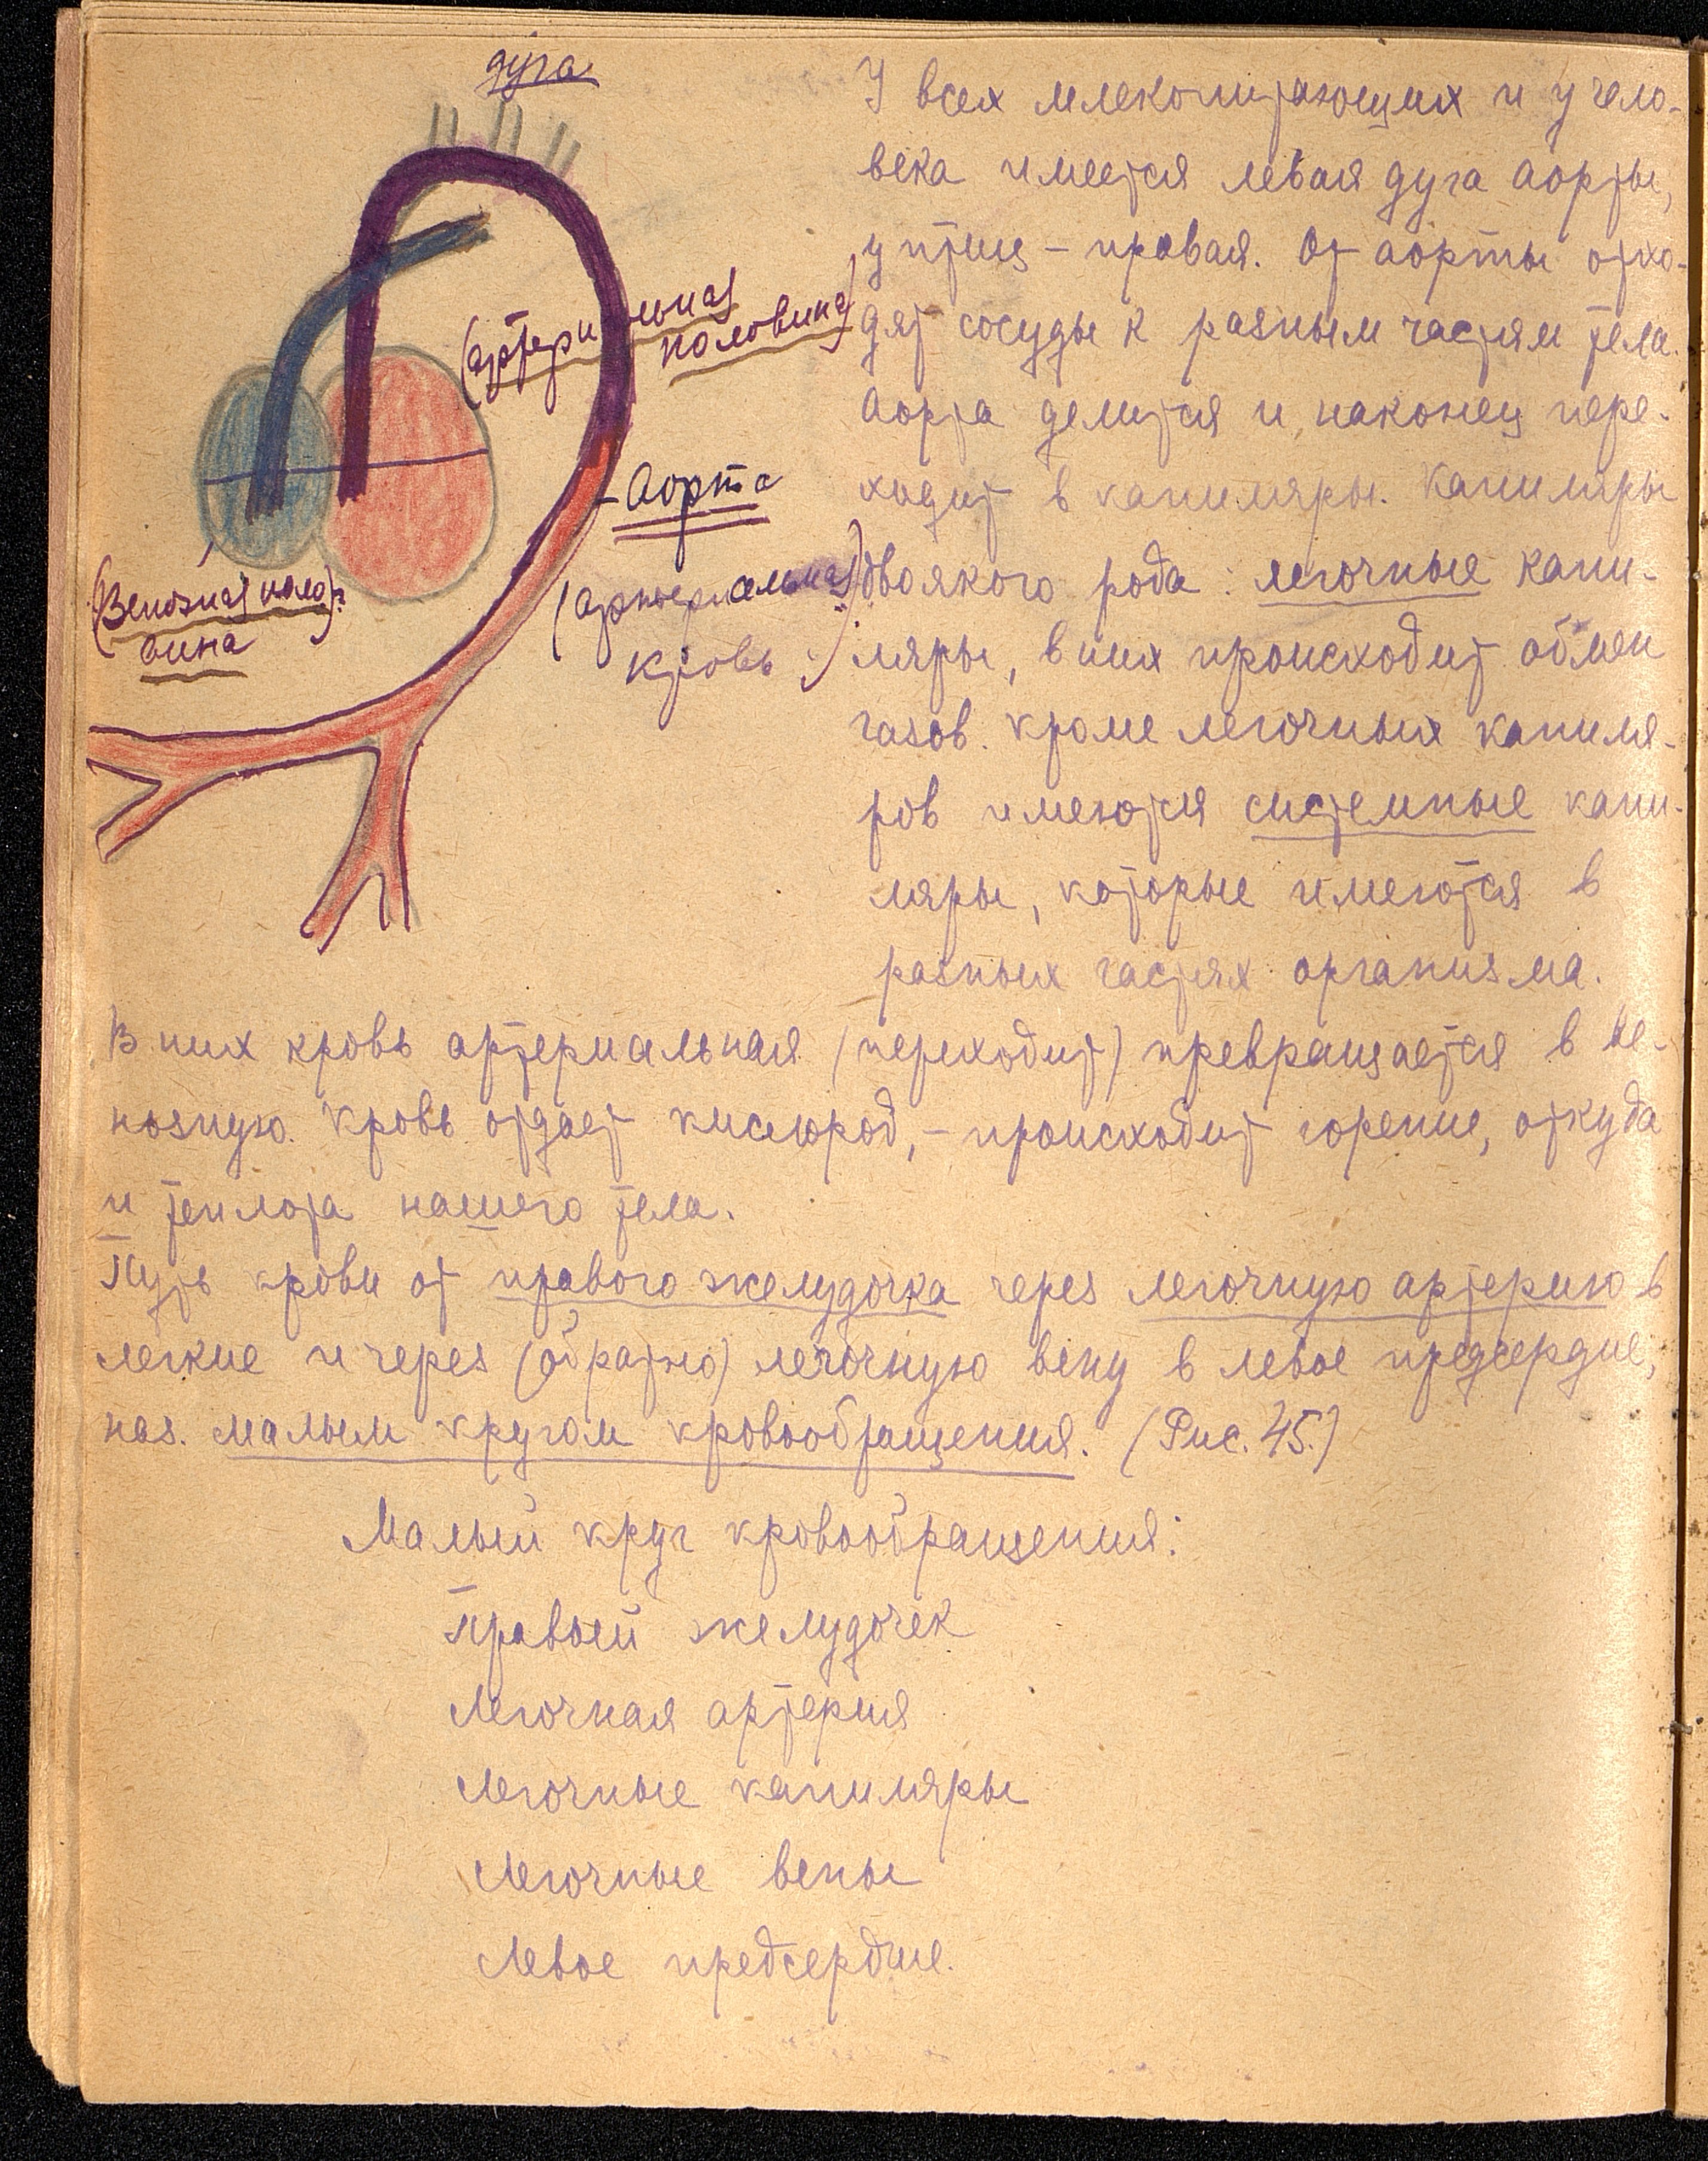 дуга
(артериальная
половина)
Аорта
(артериальная)
кровь :)
(Венозная поло-
вина
У всех млекопитающих и у чело-
века имеется левая дуга аорты,
у птиц – правая. От аорты отхо-
дят сосуды к разным частям тела.
Аорта делится и, наконец пере-
ходит в капиляры. Капиляры
двоякого рода : легочные капи-
ляры, в них происходит обмен
газов. Кроме легочных капиля-
ров имеются системные капи-
ляры, которые имеются в
разных частях организма.
В них кровь артериальная (переходит) превращается в ве-
нозную. Кровь отдает кислород, – происходит горение, откуда
и теплота нашего тела.
Путь крови от правого желудочка через легочную артерию в
легкие и через (обратно) легочную вену в левое предсердие,
наз. малым кругом кровообращения. (Рис. 45.)
Малый круг кровообращения:
Правый желудочек
Легочная артерия
Легочные капиляры
Легочные вены
Левое предсердие.